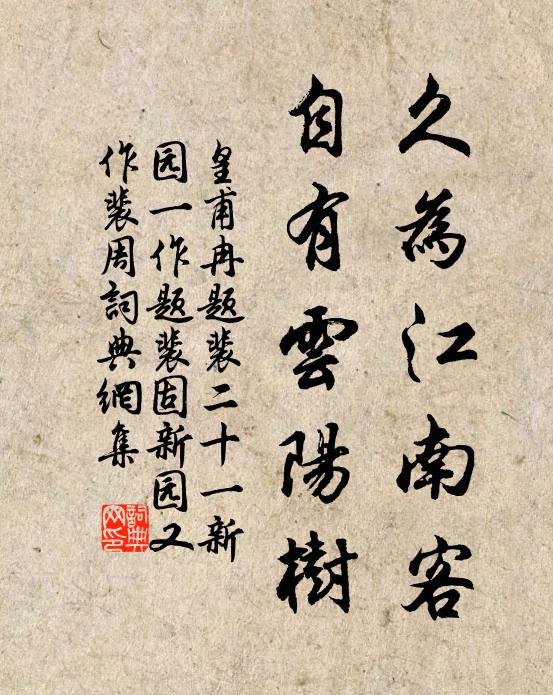 久為江南客
自有雲陽樹
皇甫冉題裴二十一新
园一作题裴固新园又
作裴周詞典網集
詞典
网印